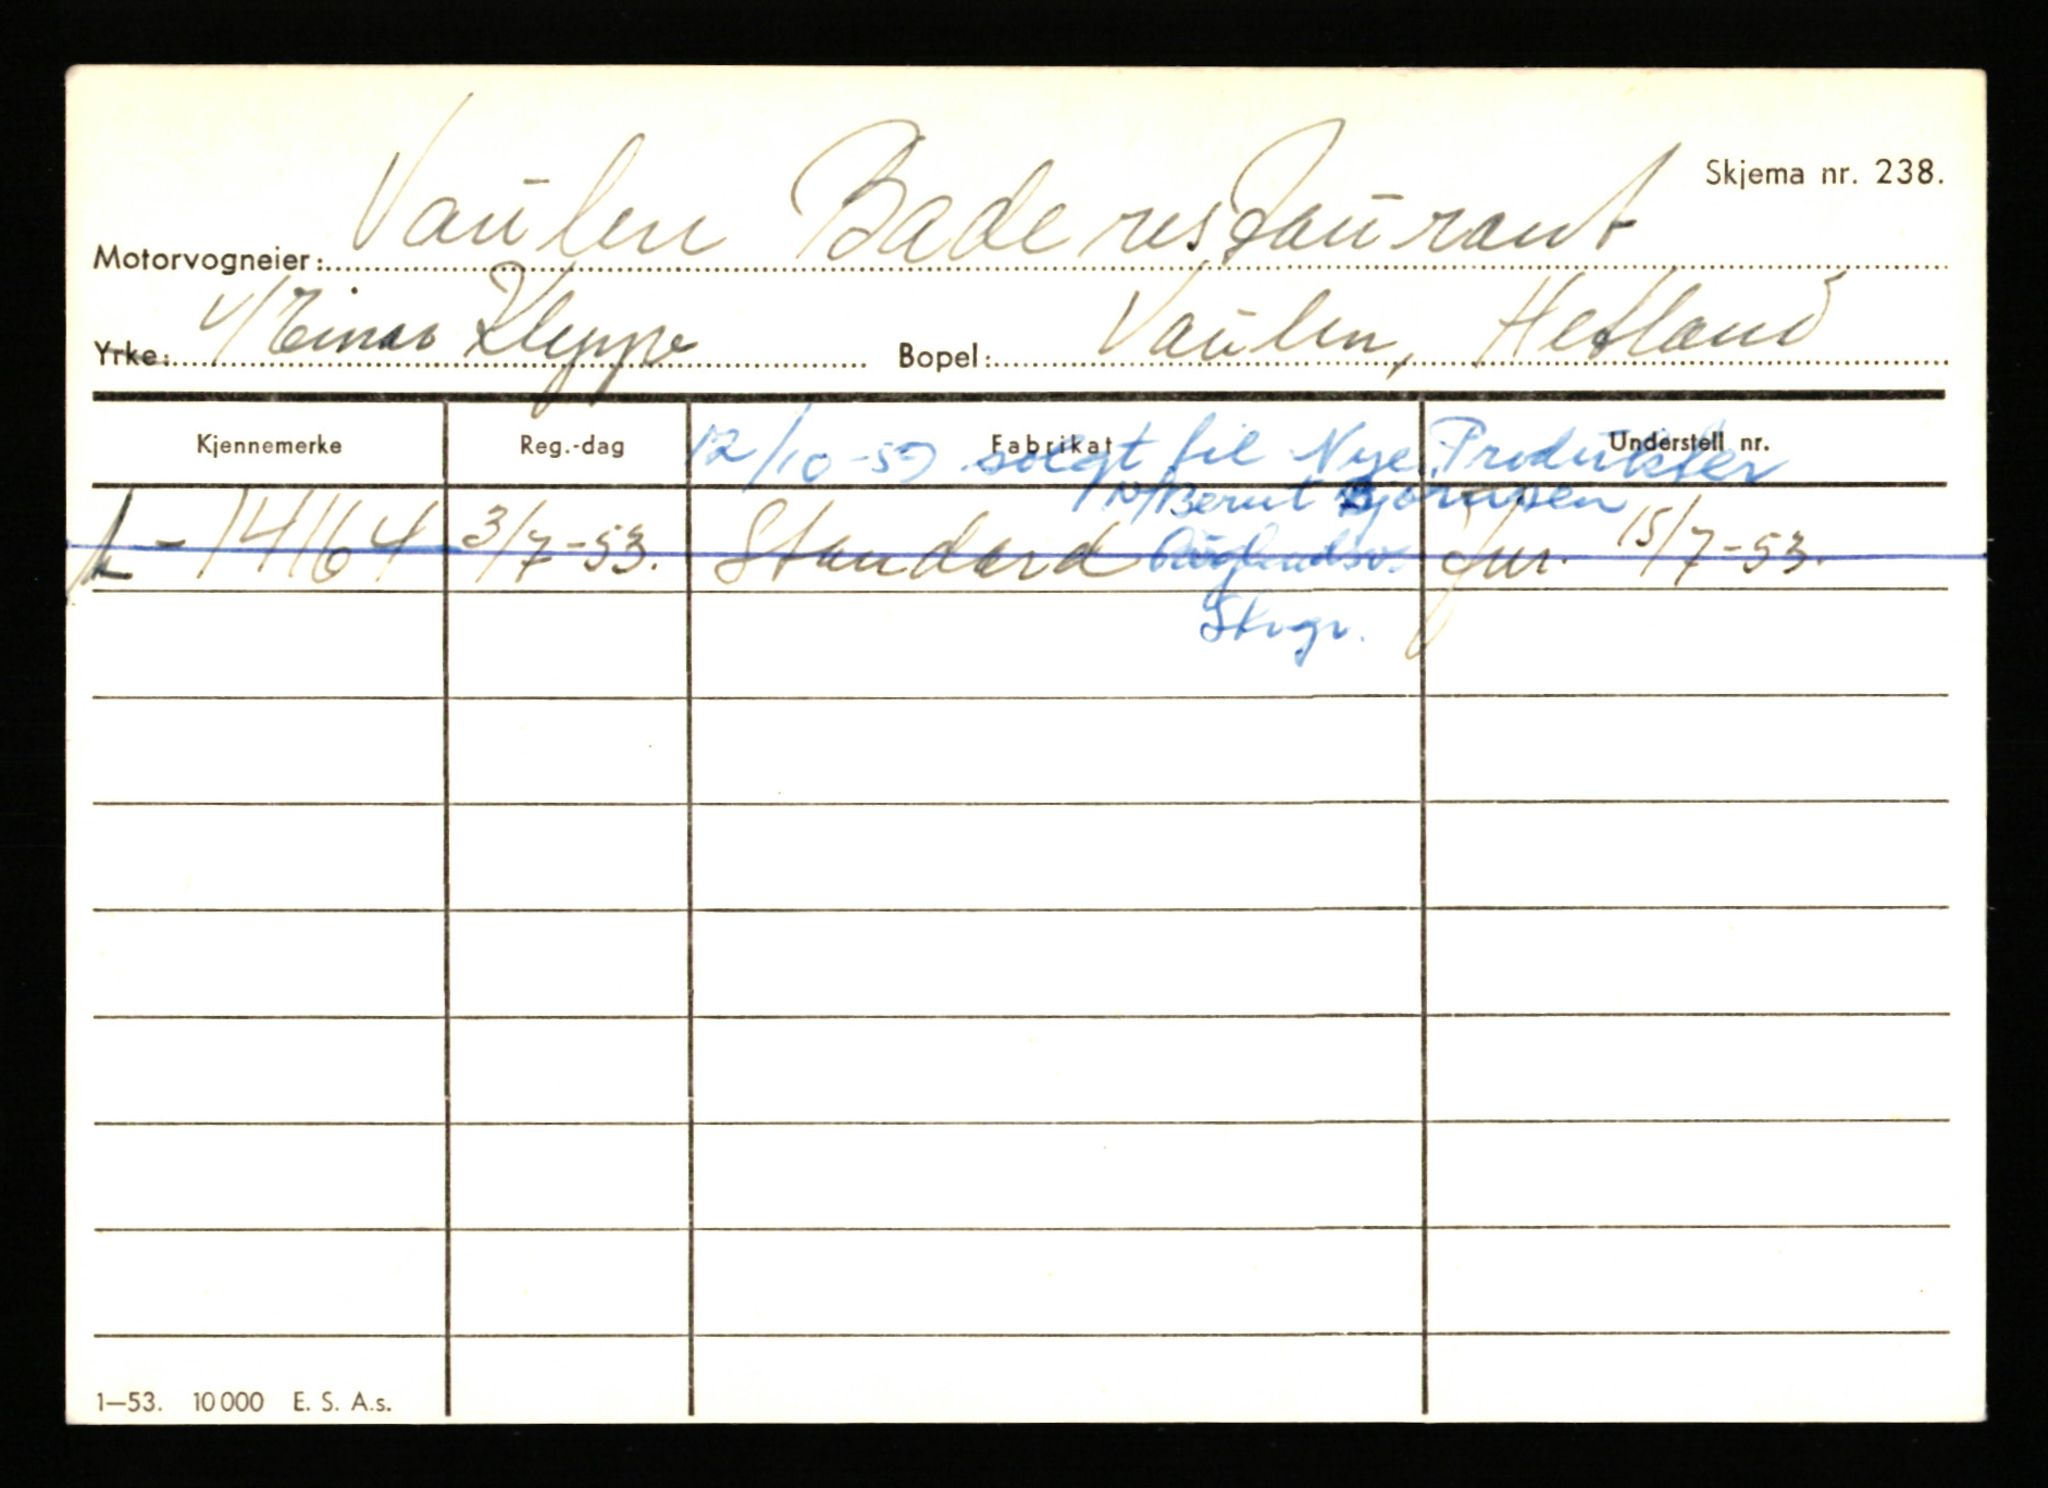 Skjema nr. 238.
Motorvogneier: Vaulen Baderestaurant
Yrke: v/Einar Kleppe Bopel: Vaulen, Hetland
Kjennemerke Reg.-dag Fabrikat Understell nr.
12/10-59 solgt til Nye Produkter
v/Bernt Bjørnsen
L-14164 3/7-53. Standard Jur. 15/7-53.
Stvgr.
1—53. 10 000 E. S. A.s.